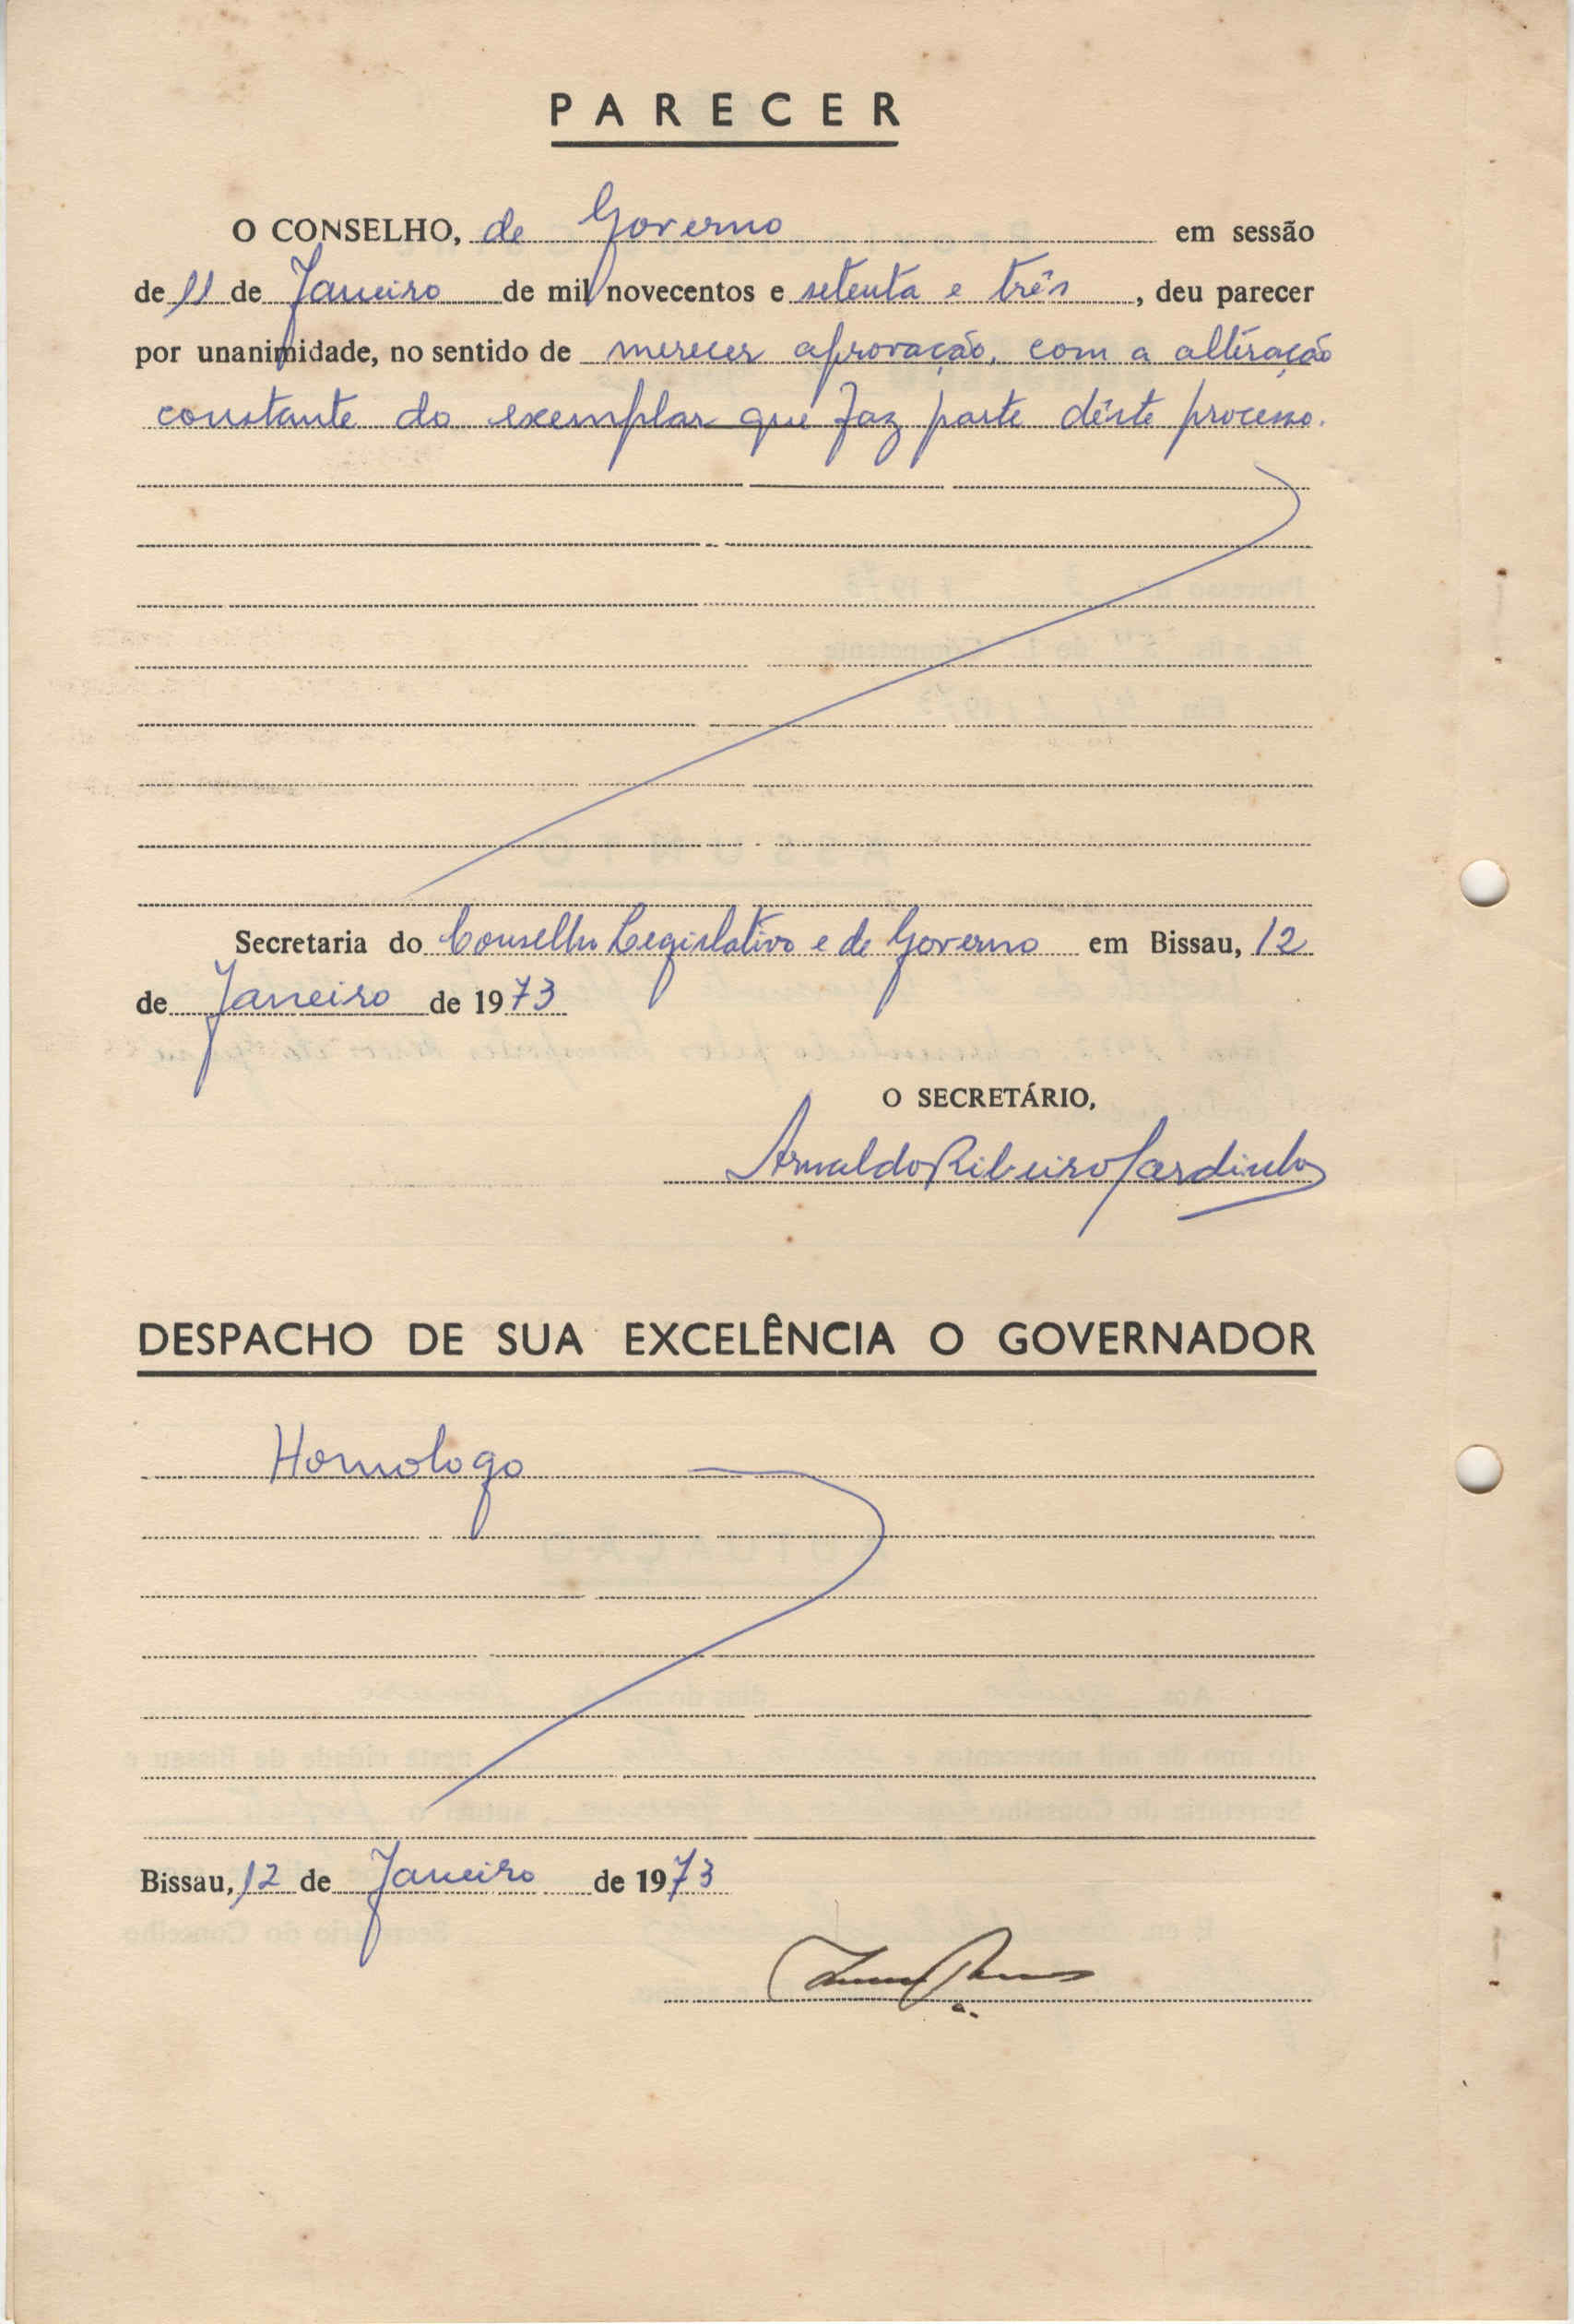 PARECER
O CONSELHO, de Governo em sessão
de 11 de Janeiro de mil novecentos e setenta e três, deu parecer
por unanimidade, no sentido de merecer aprovação, com a alteração
constante do exemplar que faz parte dêste processo.
Secretaria do Conselho Legislativo e de Governo em Bissau, 12
de Janeiro de 1973
O SECRETÁRIO,
Arnaldo Ribeiro Sardinha
DESPACHO DE SUA EXCELÊNCIA O GOVERNADOR
Homologo
Bissau, 12 de Janeiro de 1973